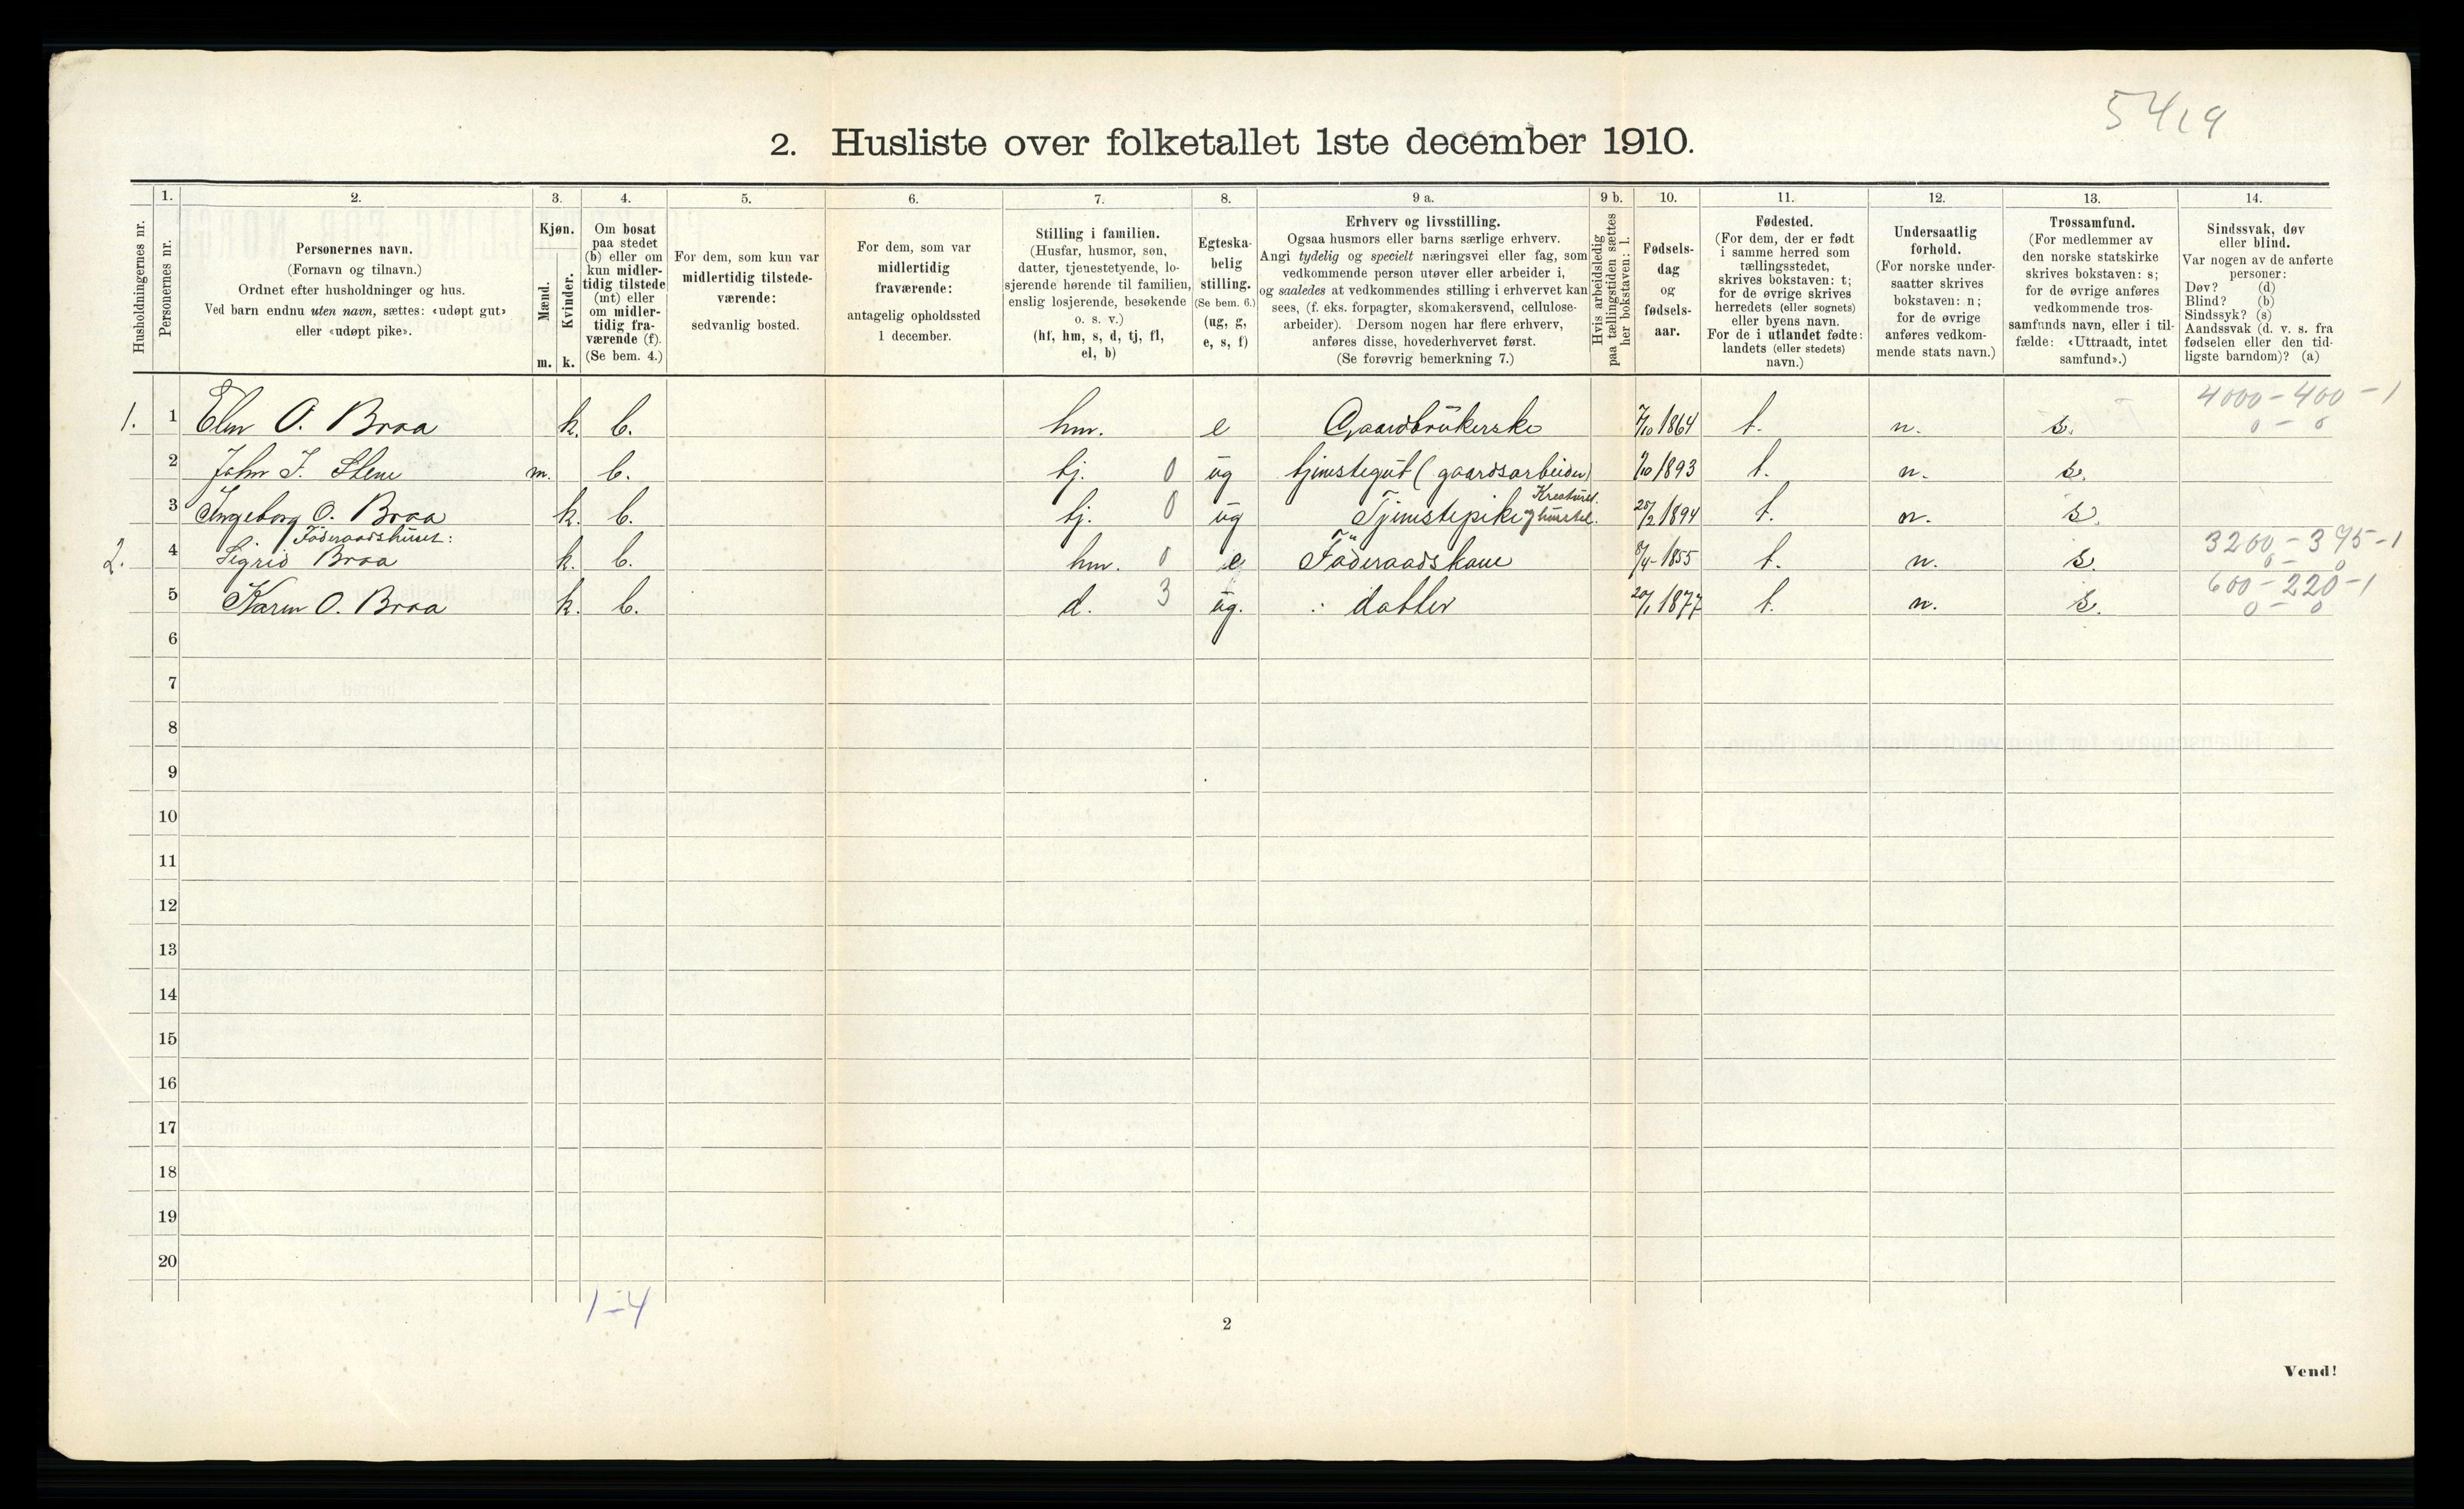 5419
2. Husliste over folketallet 1ste december 1910.
Husholdningernes nr.
1.
Personernes nr.
2.
Personernes navn.
(Fornavn og tilnavn.)
Ordnet efter husholdninger og hus.
Ved barn endnu uten navn, sættes: «udøpt gut»
eller «udøpt pike».
3.
Kjøn.
Mænd.
m.
Kvinder.
k.
4.
Om bosat
paa stedet
(b) eller om
kun midler-
tidig tilstede
(mt) eller
om midler-
tidig fra-
værende (f).
(Se bem. 4.)
5.
For dem, som kun var
midlertidig tilstede-
værende:
sedvanlig bosted.
6.
For dem, som var
midlertidig
fraværende:
antagelig opholdssted
1 december.
7.
Stilling i familien.
(Husfar, husmor, søn,
datter, tjenestetyende, lo-
sjerende hørende til familien,
enslig losjerende, besøkende
o. s. v.)
(hf, hm, s, d, tj, fl,
el, b)
8.
Egteska-
belig
stilling.
(Se bem. 6.)
(ug, g,
e, s, f)
9 a.
Erhverv og livsstilling.
Ogsaa husmors eller barns særlige erhverv.
Angi tydelig og specielt næringsvei eller fag, som
vedkommende person utøver eller arbeider i,
og saaledes at vedkommendes stilling i erhvervet kan
sees, (f. eks. forpagter, skomakersvend, cellulose-
arbeider). Dersom nogen har flere erhverv,
anføres disse, hovederhvervet først.
(Se forøvrig bemerkning 7.)
9 b.
Hvis arbeidsledig
paa tællingstiden sættes
her bokstaven: l.
10.
Fødsels-
dag
og
fødsels-
aar.
11.
Fødested.
(For dem, der er født
i samme herred som
tællingsstedet,
skrives bokstaven: t;
for de øvrige skrives
herredets (eller sognets)
eller byens navn.
For de i utlandet fødte:
landets (eller stedets)
navn.)
12.
Undersaatlig
forhold.
(For norske under-
saatter skrives
bokstaven: n;
for de øvrige
anføres vedkom-
mende stats navn.)
13.
Trossamfund.
(For medlemmer av
den norske statskirke
skrives bokstaven: s;
for de øvrige anføres
vedkommende tros-
samfunds navn, eller i til-
fælde: «Uttraadt, intet
samfund».)
14.
Sindssvak, døv
eller blind.
Var nogen av de anførte
personer:
Døv? (d)
Blind? (b)
Sindssyk? (s)
Aandssvak (d. v. s. fra
fødselen eller den tid-
ligste barndom)? (a)
4000 - 400 - 1
1. 1 Elen O. Braa k. b. hm. e Gaardbrukerske 7/10 1864 t. n. s. 0 - 0
2 John J. Stene m. b. tj. 0 ug tjenestegut (gaardsarbeider) 1893 t. n. s.
Kreaturst.
3 Ingeborg O. Braa k. b. tj. 0 ug Tjenestepike og husstel. 25/2 1894 t. n. s.
Föderaadshuset: 3200 - 395 - 1
2. 4 Sigrid Braa k. b. hm. 0 e Föderaadskone 8/4 - 1855 t. n. s. 0 - 0
600 - 220 - 1
5 Karen O. Braa k. b. d. 3 ug. : datter 20/1 1877 t. n. s. 0 - 0
6
7
8
9
10
11
12
13
14
15
16
17
18
19
20
1 - 4
2
Vend!